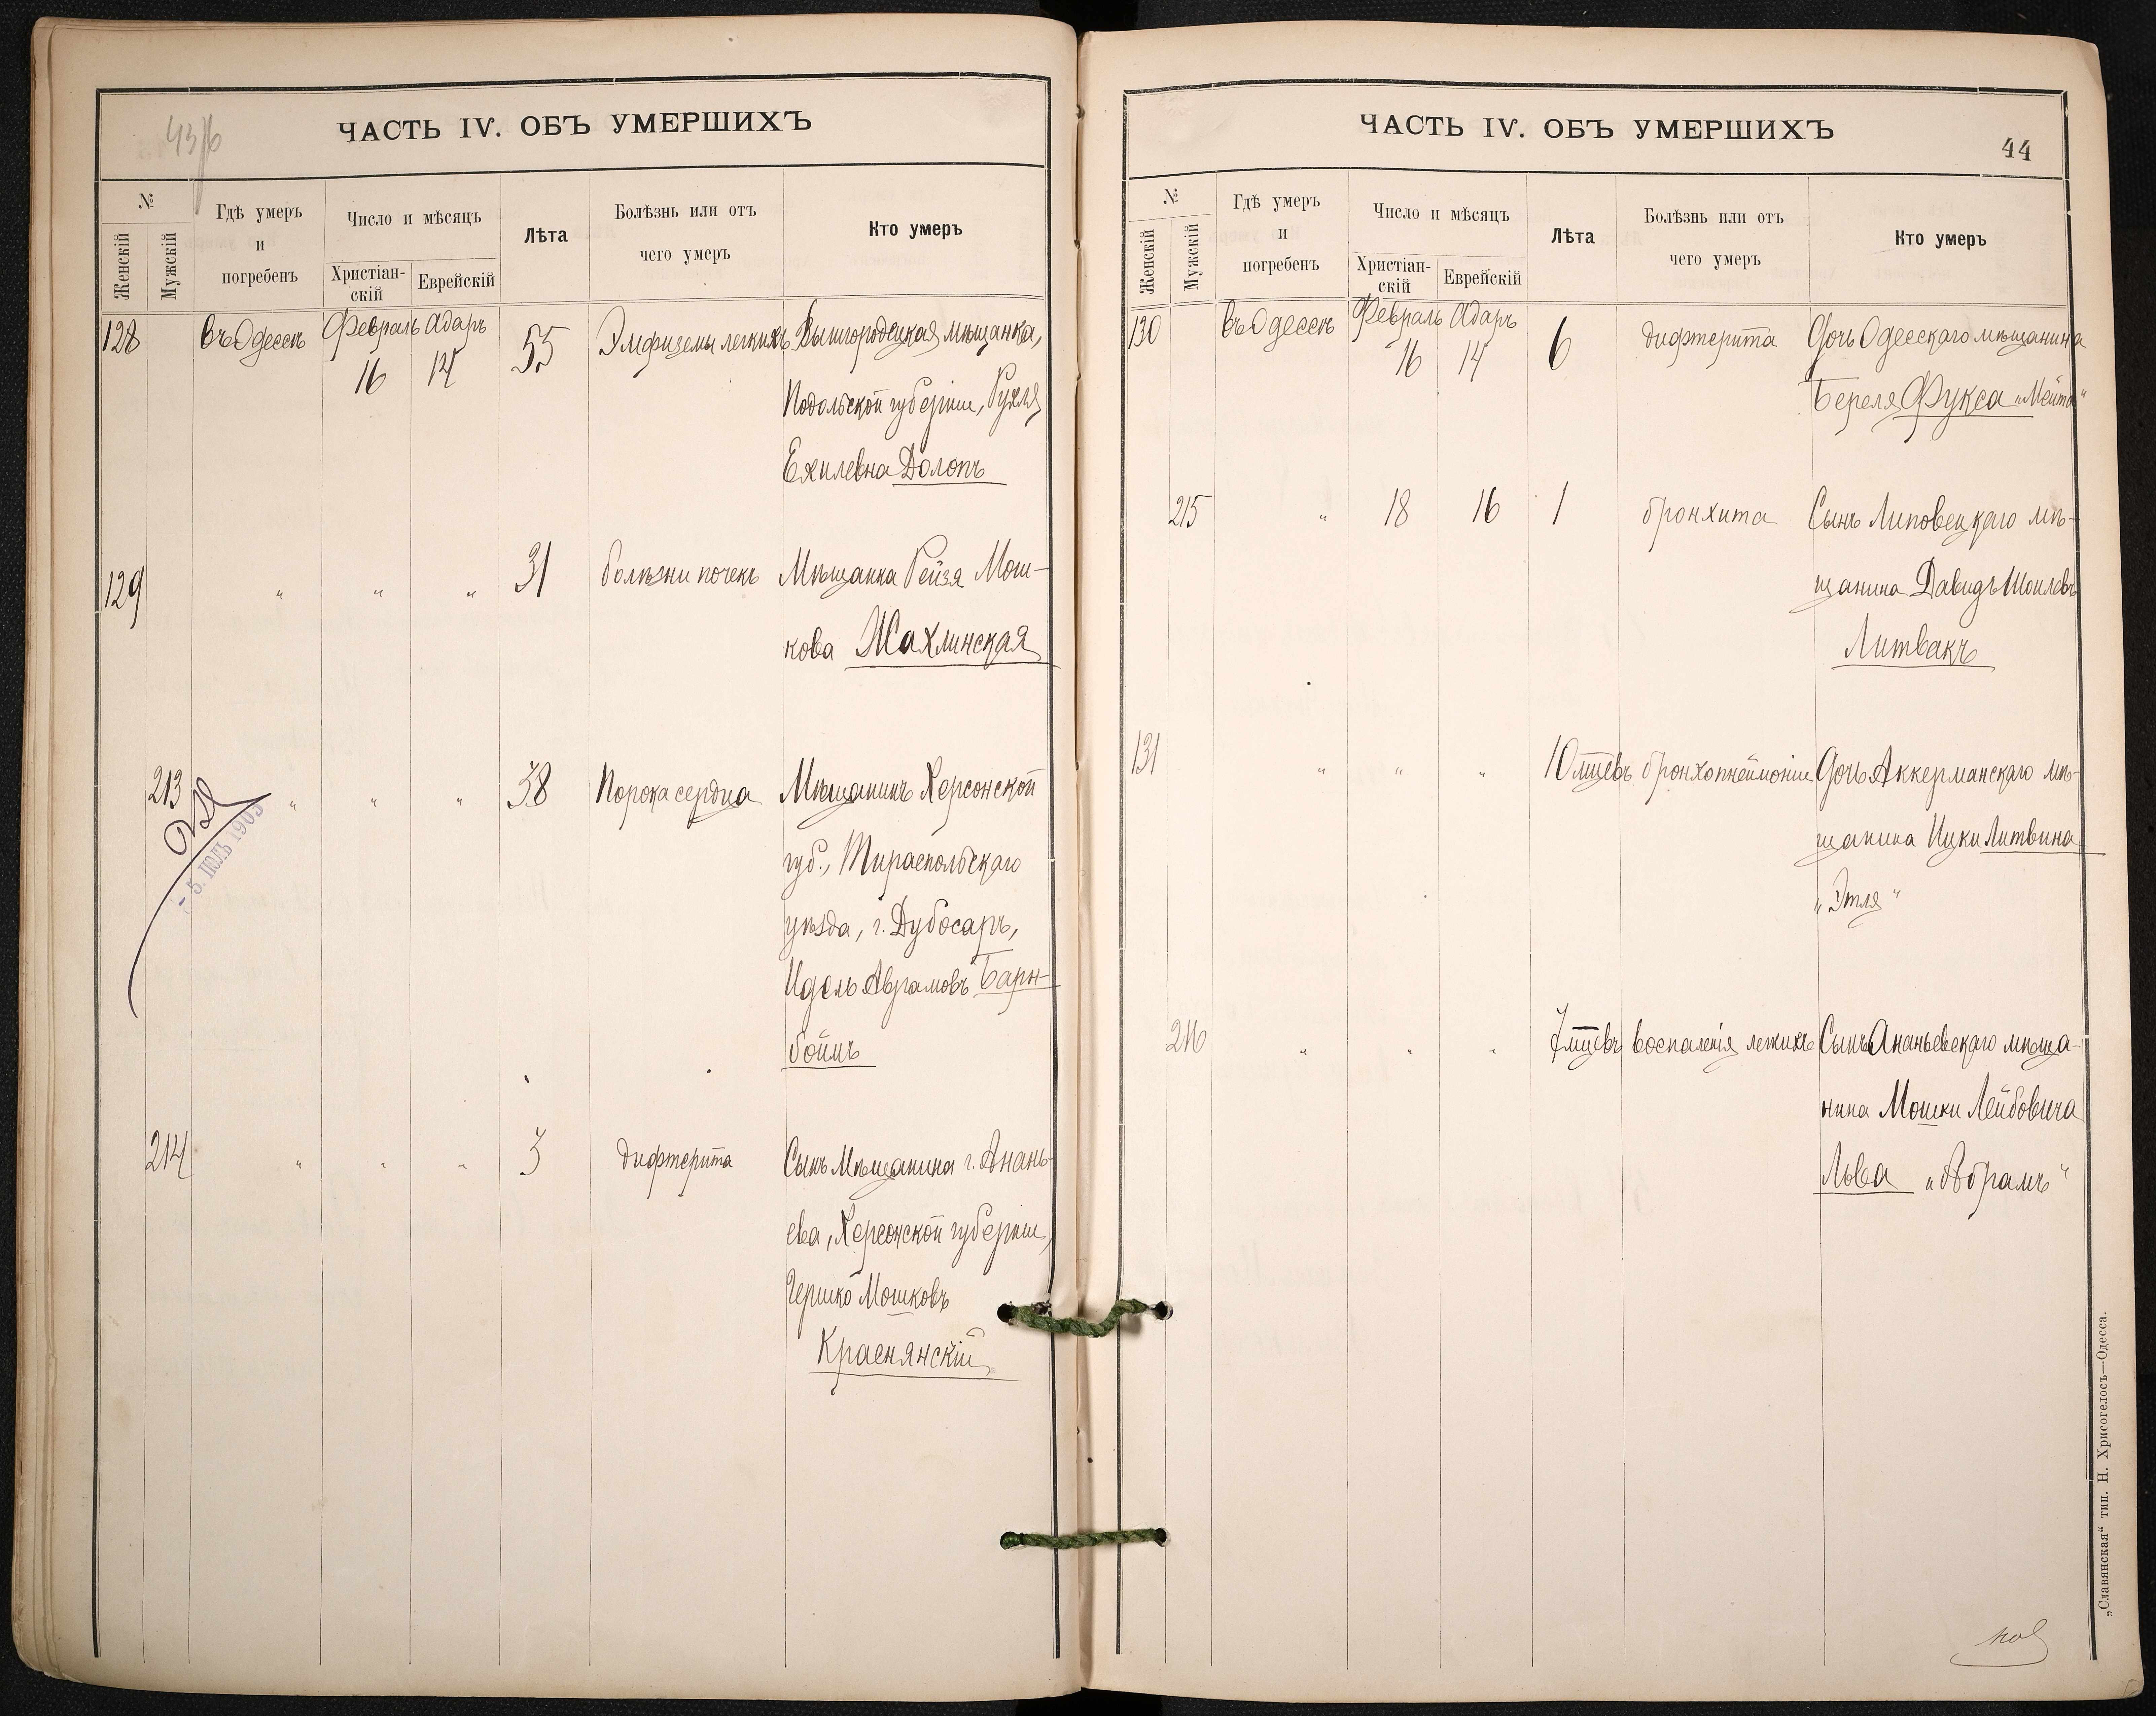 43об
ЧАСТЬ IV. ОБЪ УМЕРШИХЪ
№
Женскій
Мужскій
Гдѣ умеръ и погребенъ
Число и мѣсяцъ
Христіан-скій
Еврейскій
Лѣта
Болѣзнь или отъ чего умеръ
Кто умеръ
128 въ Одессѣ Февраль Адаръ 55 Эмфиземы легкихъ Вышгородецкая мѣщанка,
16 14
Подольской губерніи, Рухля
Ехилевна Долопъ
129 " " " 31 болѣзни почекъ Мѣщанка Рейзя Мош-
кова Жахлинская
213 " " " 38 Порока сердца Мѣщанинъ Херсонской
губ., Тираспольскаго
уѣзда, г. Дубосаръ,
Идель Аврамовъ Барн-
боймъ
- 5. ІЮЛЬ 1903
214 " " " 3 дифтерита Сынъ Мѣщанина г. Анань-
ева, Херсонской губерніи,
Гершко Мошковъ
Краснянскій
ЧАСТЬ IV. ОБЪ УМЕРШИХЪ
44
№
Женскій
Мужскій
Гдѣ умеръ и погребенъ
Число и мѣсяцъ
Христіан-скій
Еврейскій
Лѣта
Болѣзнь или отъ чего умеръ
Кто умеръ
130 въ Одессѣ Февраль Адаръ 6 дифтерита Дочь Одесскаго мѣщанина
16 14
Береля Фукса „Мейта"
215 " 18 16 1 бронхита Сынъ Липовецкаго мѣ-
щанина Давидъ Шоилевъ
Литвакъ
131 " " " 10 мцевъ бронхопнеймоніи Дочь Аккерманскаго мѣ-
щанина Ицки Литвина
„Этля"
216 " " " 7 мцевъ воспаленія легкихъ Сынъ Ананьевскаго мѣща-
нина Мошки Лейбовича
Льва „Абрамъ"
„Славянская" тип. Н. Хрисогелосъ—Одесса.